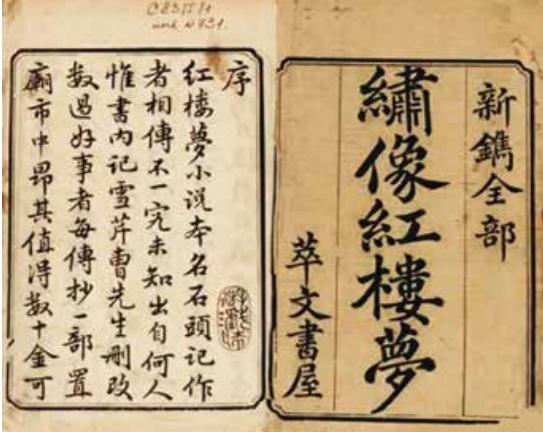 新鐫全部
繡像紅樓夢
萃文書屋
序
紅樓夢小說本名石頭記作
者相傳不一究未知出自何人
惟書內記雪芹曹先生刪改
數過好事者每傳抄一部置
廟市中昂其值得數十金可